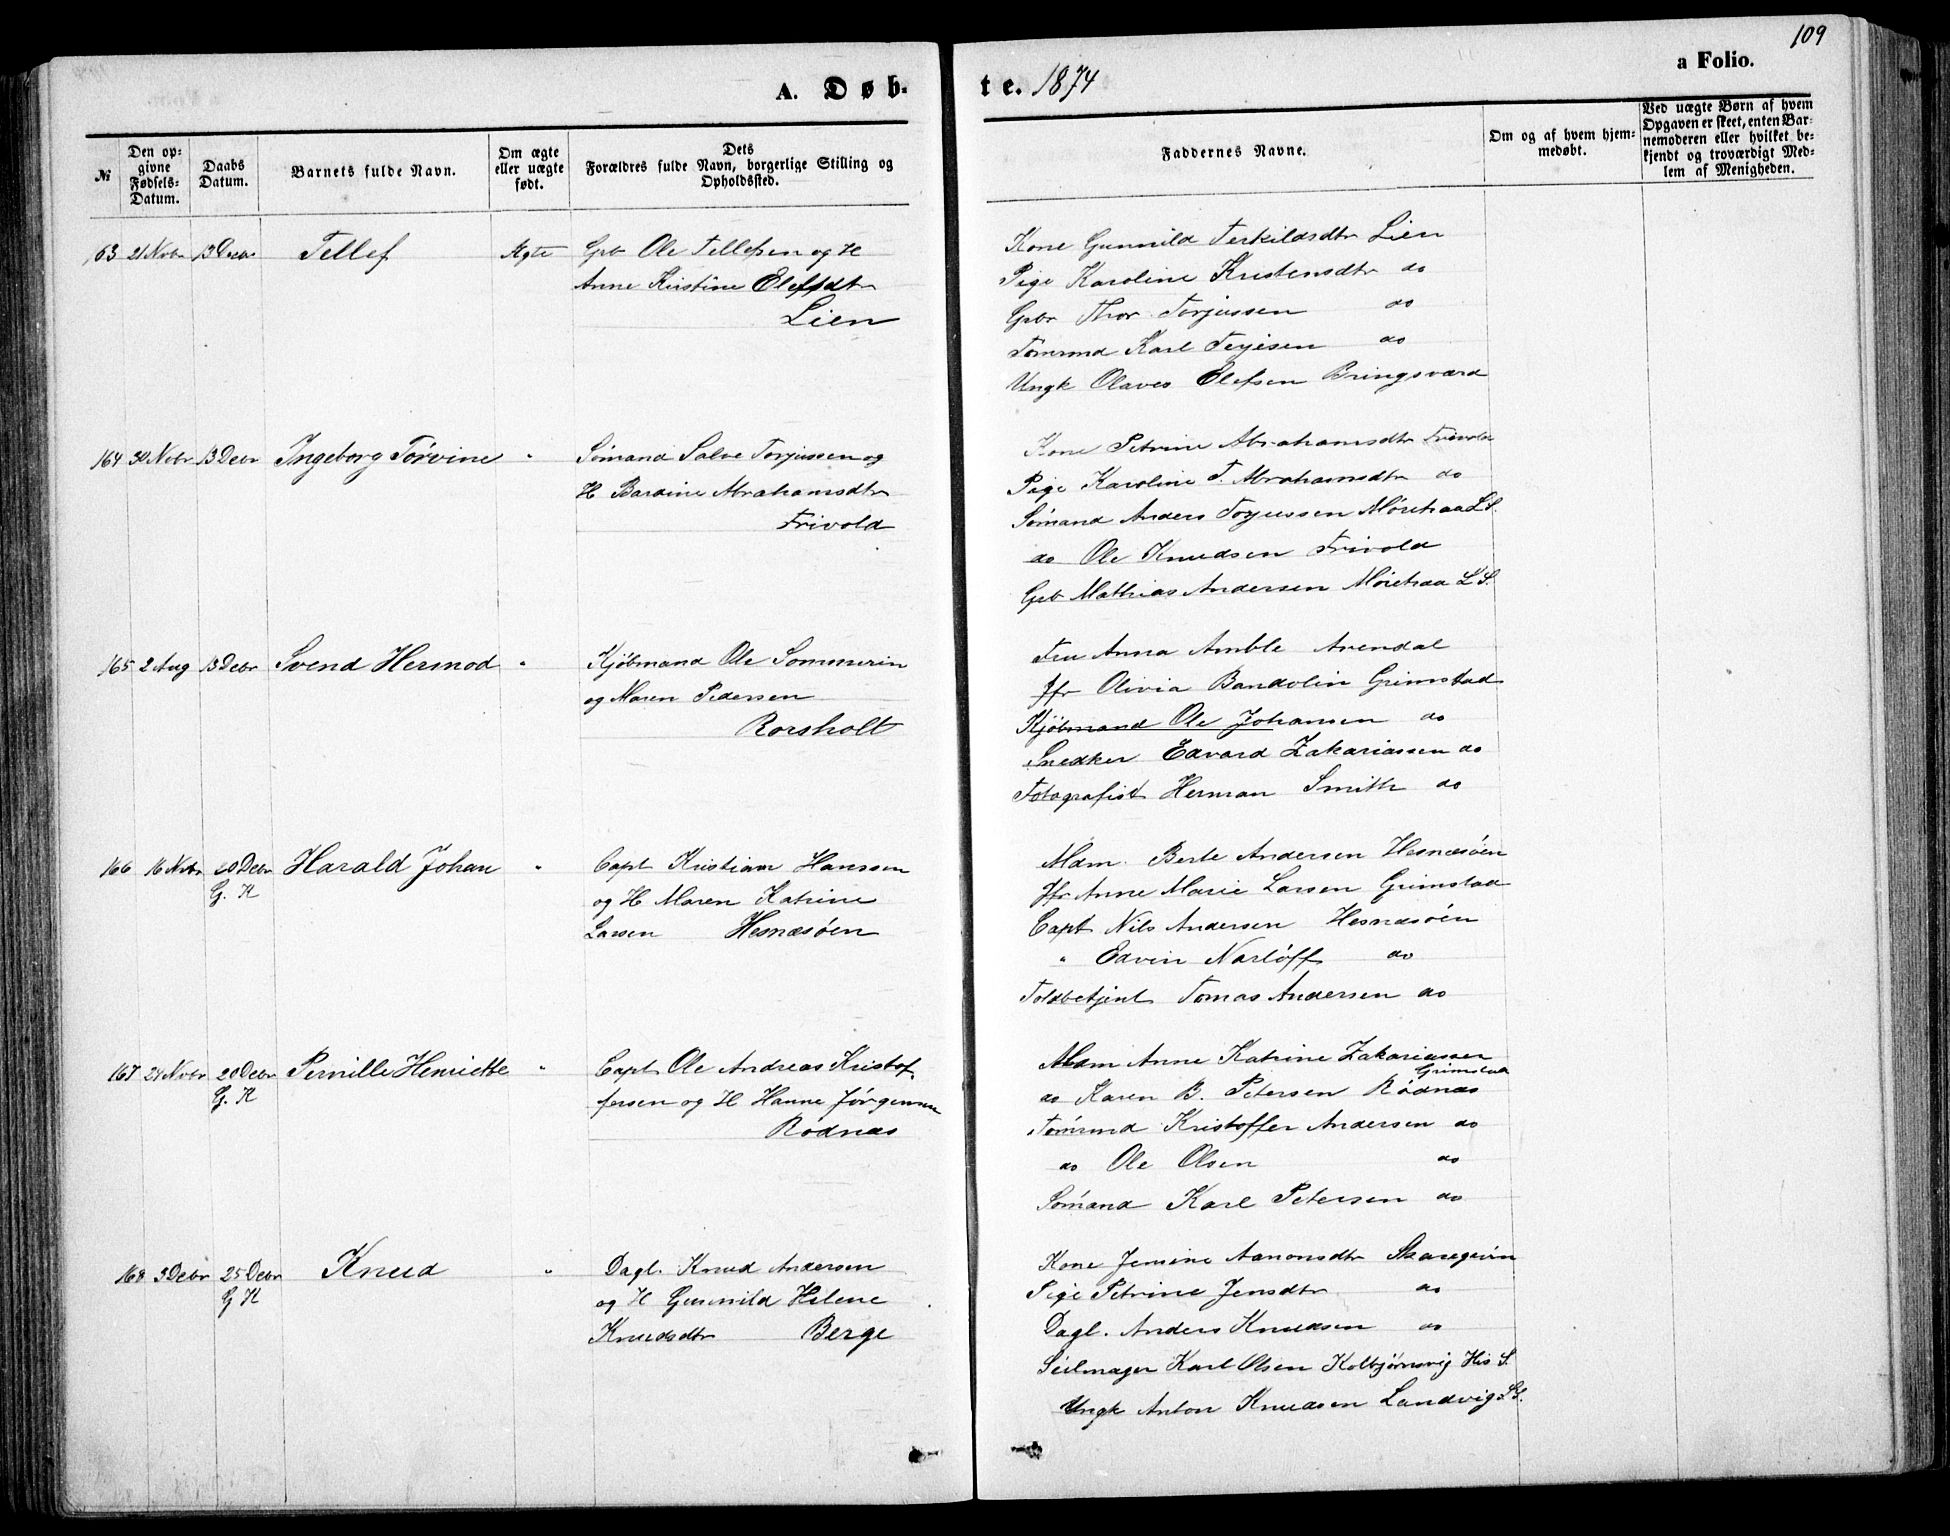 109
A. Døb-
te. 1874
a Folio.
№
Den op-
givne
Fødsels-
Datum.
Daabs
Datum.
Barnets fulde Navn.
Om ægte
eller uægte
født.
Dets
Forældres fulde Navn, borgerlige Stilling og
Opholdssted.
Faddernes Navne.
Om og af hvem hjem-
medøbt.
Ved uægte Børn af hvem
Opgaven er skeet, enten Bar-
nemoderen eller hvilket be-
kjendt og troværdigt Med-
lem af Menigheden.
163 21 Nvbr 13 Decbr Tellef Ægte Grb Ole Tellefsen og H
Anne Kirstine Olefsdtr
Lien
Kone Gunnild Terkildsdtr Lien
Pige Karoline Kristensdtr do
Gbr Thor Torjussen do
Tømrmd Karl Terjesen do
Ungk Olaves Olefsen Bringsværd
164 30 Nvbr 13 Debr Ingeborg Torvine " Sømand Salve Torjussen og
H Bardine Abrahamsdtr
Frivold
Kone Petrine Abrahamsdtr Frivold
Pige Karoline T. Abrahamsdtr do
Sømand Anders Torjussen Møretraa L S.
do Ole Knudsen Frivold
Grb Mathias Andersen Møretraa L S.
165 2 Aug 13 Debr Svend Hermod " Kjøbmand Ole Sommerin
og Maren Pedersen
Rorsholt
Fru Anna Amble Arendal
Jfr Olivia Bandolin Grimstad
Kjøbmand Ole Johansen do
Snedker Edvard Zakariassen do
Fotografist Herman Smith do
166 16 Nvbr 20 Debr Harald Johan " Capt Kristian Hanssen
G. K
og H Maren Katrine
Larsen Hesnæsøen
Mdm. Berte Andersen Hesnæsøen
Jfr Anne Marie Larsen Grimstad
Capt Nils Andersen Hesnæsøen
" Edvin Narløff do
Toldbetjent Tomas Andersen do
167 24 Nvbr 20 Debr Pernille Henriette " Capt Ole Andreas Kristof-
G. K
fersen og H Hanne Jørgensen
Rodnæs
Mdm Anne Katrine Zakariassen
Grimstad
do Karen B. Petersen Rødnæs
Tømrmd Kristoffer Andersen do
do Ole Olsen do
Sømand Karl Petersen do
168 3 Debr 25 Debr Knud " Dagl. Knud Andersen
G K
og H Gunnild Helene
Knudsdtr Berge
Kone Jensine Aanonsdtr
Pige Petrine Jensdtr do
Dagl. Anders Knudsen do
Seilmager Karl Olsen Kolbjørnsvig His S.
Ungk Anton Knudsen Landvig L S.